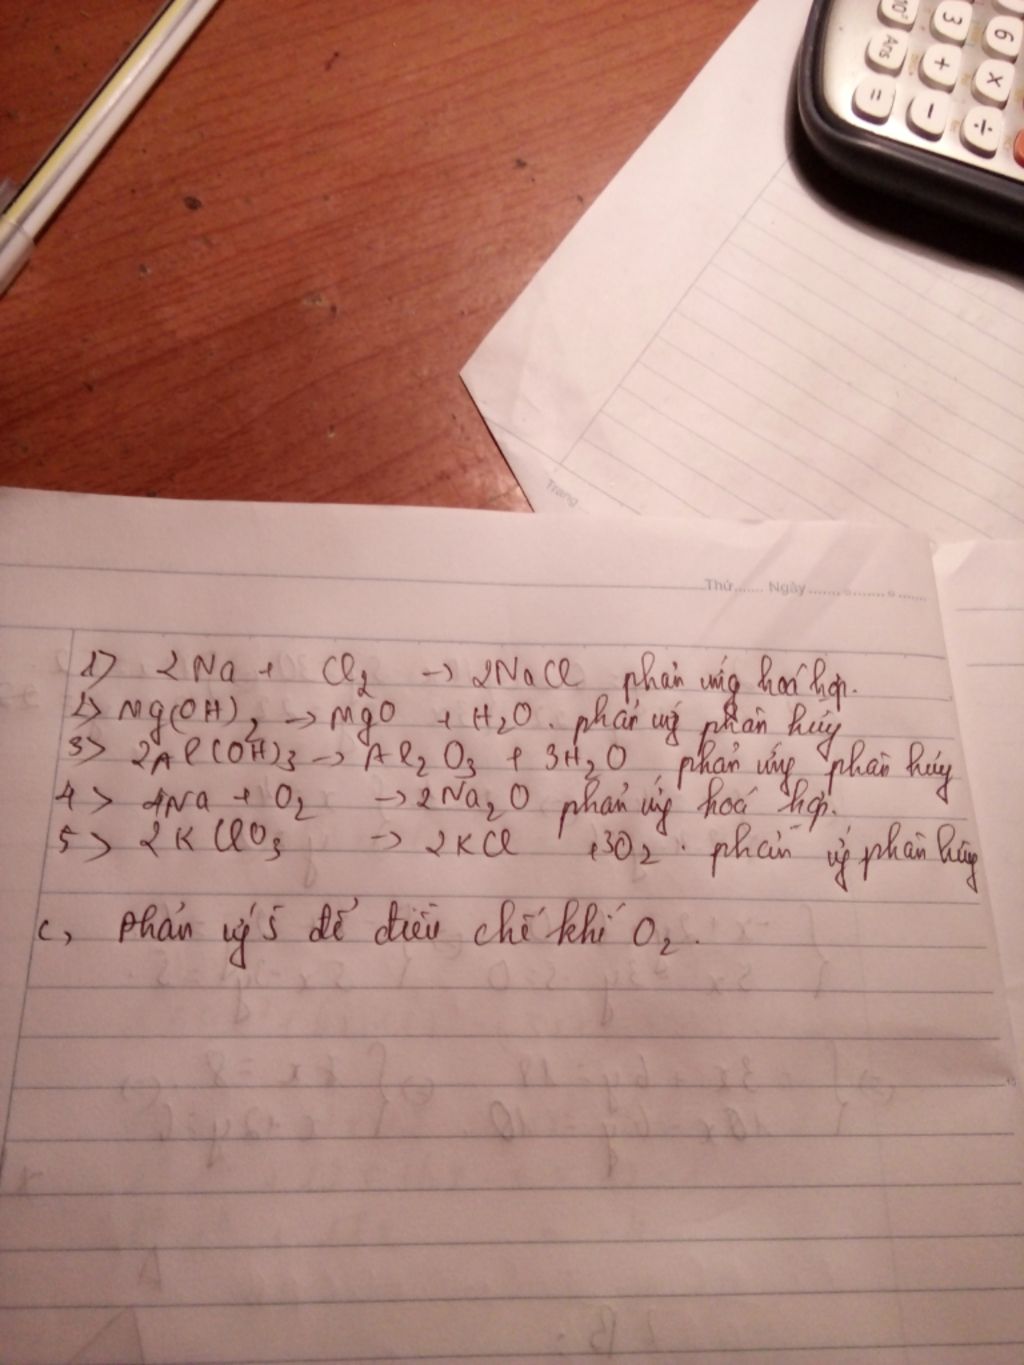 10ˣ 3 6
Ans + ×
= − ÷
Trang
Thứ...... Ngày ...................
1> 2Na + Cl₂ → 2NaCl phản ứng hoá hợp.
2> Mg(OH)₂ → MgO + H₂O. phản ứng phân hủy
3> 2Al(OH)₃ → Al₂O₃ + 3H₂O phản ứng phân hủy
4> 4Na + O₂ → 2Na₂O phản ứng hoá hợp.
5> 2KClO₃ → 2KCl +3O₂. phản ứng phân hủy
c, Phản ứng 5 để điều chế khí O₂.